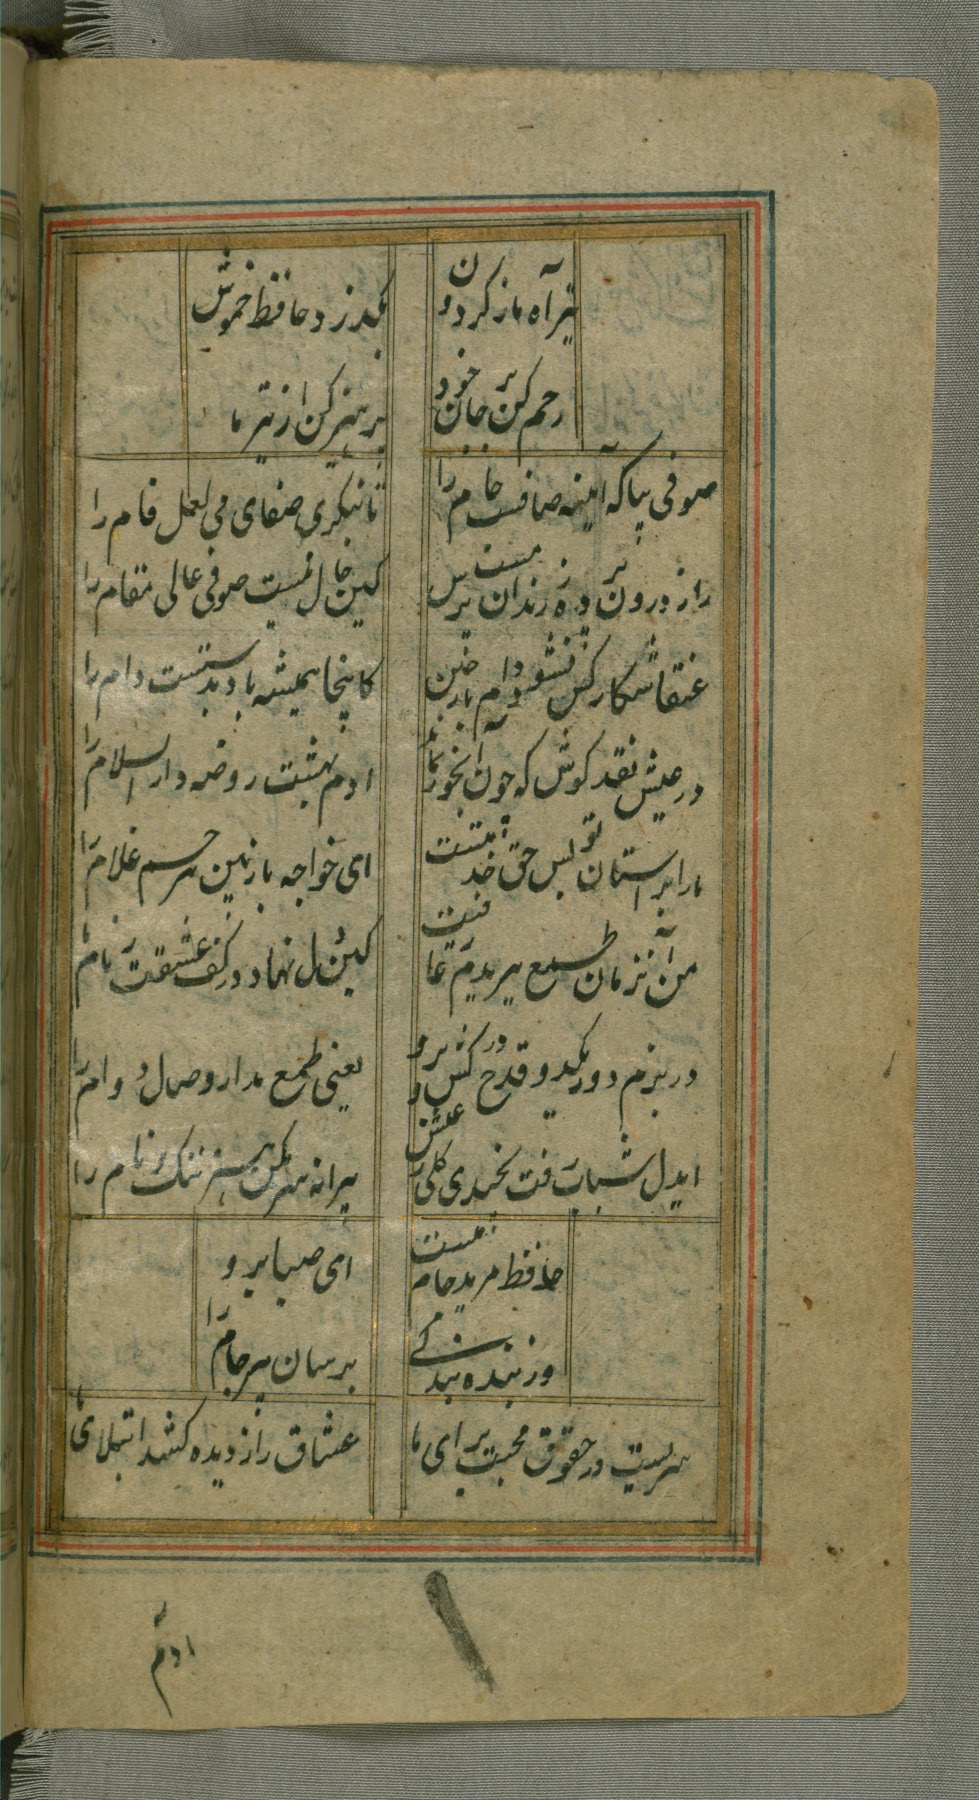 تیر آه ما ز گردون بگذرد حافظ خموش
رحم کن بر جان خود پرهیز کن از تیر ما
صوفی بیا که آینه صافست جام را تا بنگری صفای می لعل فام را
راز درون پرده ز رندان مست پرس کین حال نیست صوفی عالی مقام را
عنقا شکار کس نشود دام باز چین کانجا همیشه باد بدستست دام را
در عیش نقد کوش که چون آبخور نماند ادم بهشت روضه دار السلام را
ما را بر استان تو بس حق خدمتست ای خواجه باز بین ترحم غلام را
من آنزمان طمع ببریدم ز عافیت کین دل نهاد در کف عشقت زمام را
در بزم دور یکدو قدح درکش و برو یعنی طمع مدار وصال دوام را
ایدل شباب رفت نچیدی گلی ز عیش پیرانه سر مکن هنر ننگ و نام را
حافظ مرید جام میست ای صبا برو
وز بنده بندگی برسان پیر جام را
عشاق را ز دیده کشد
ادم